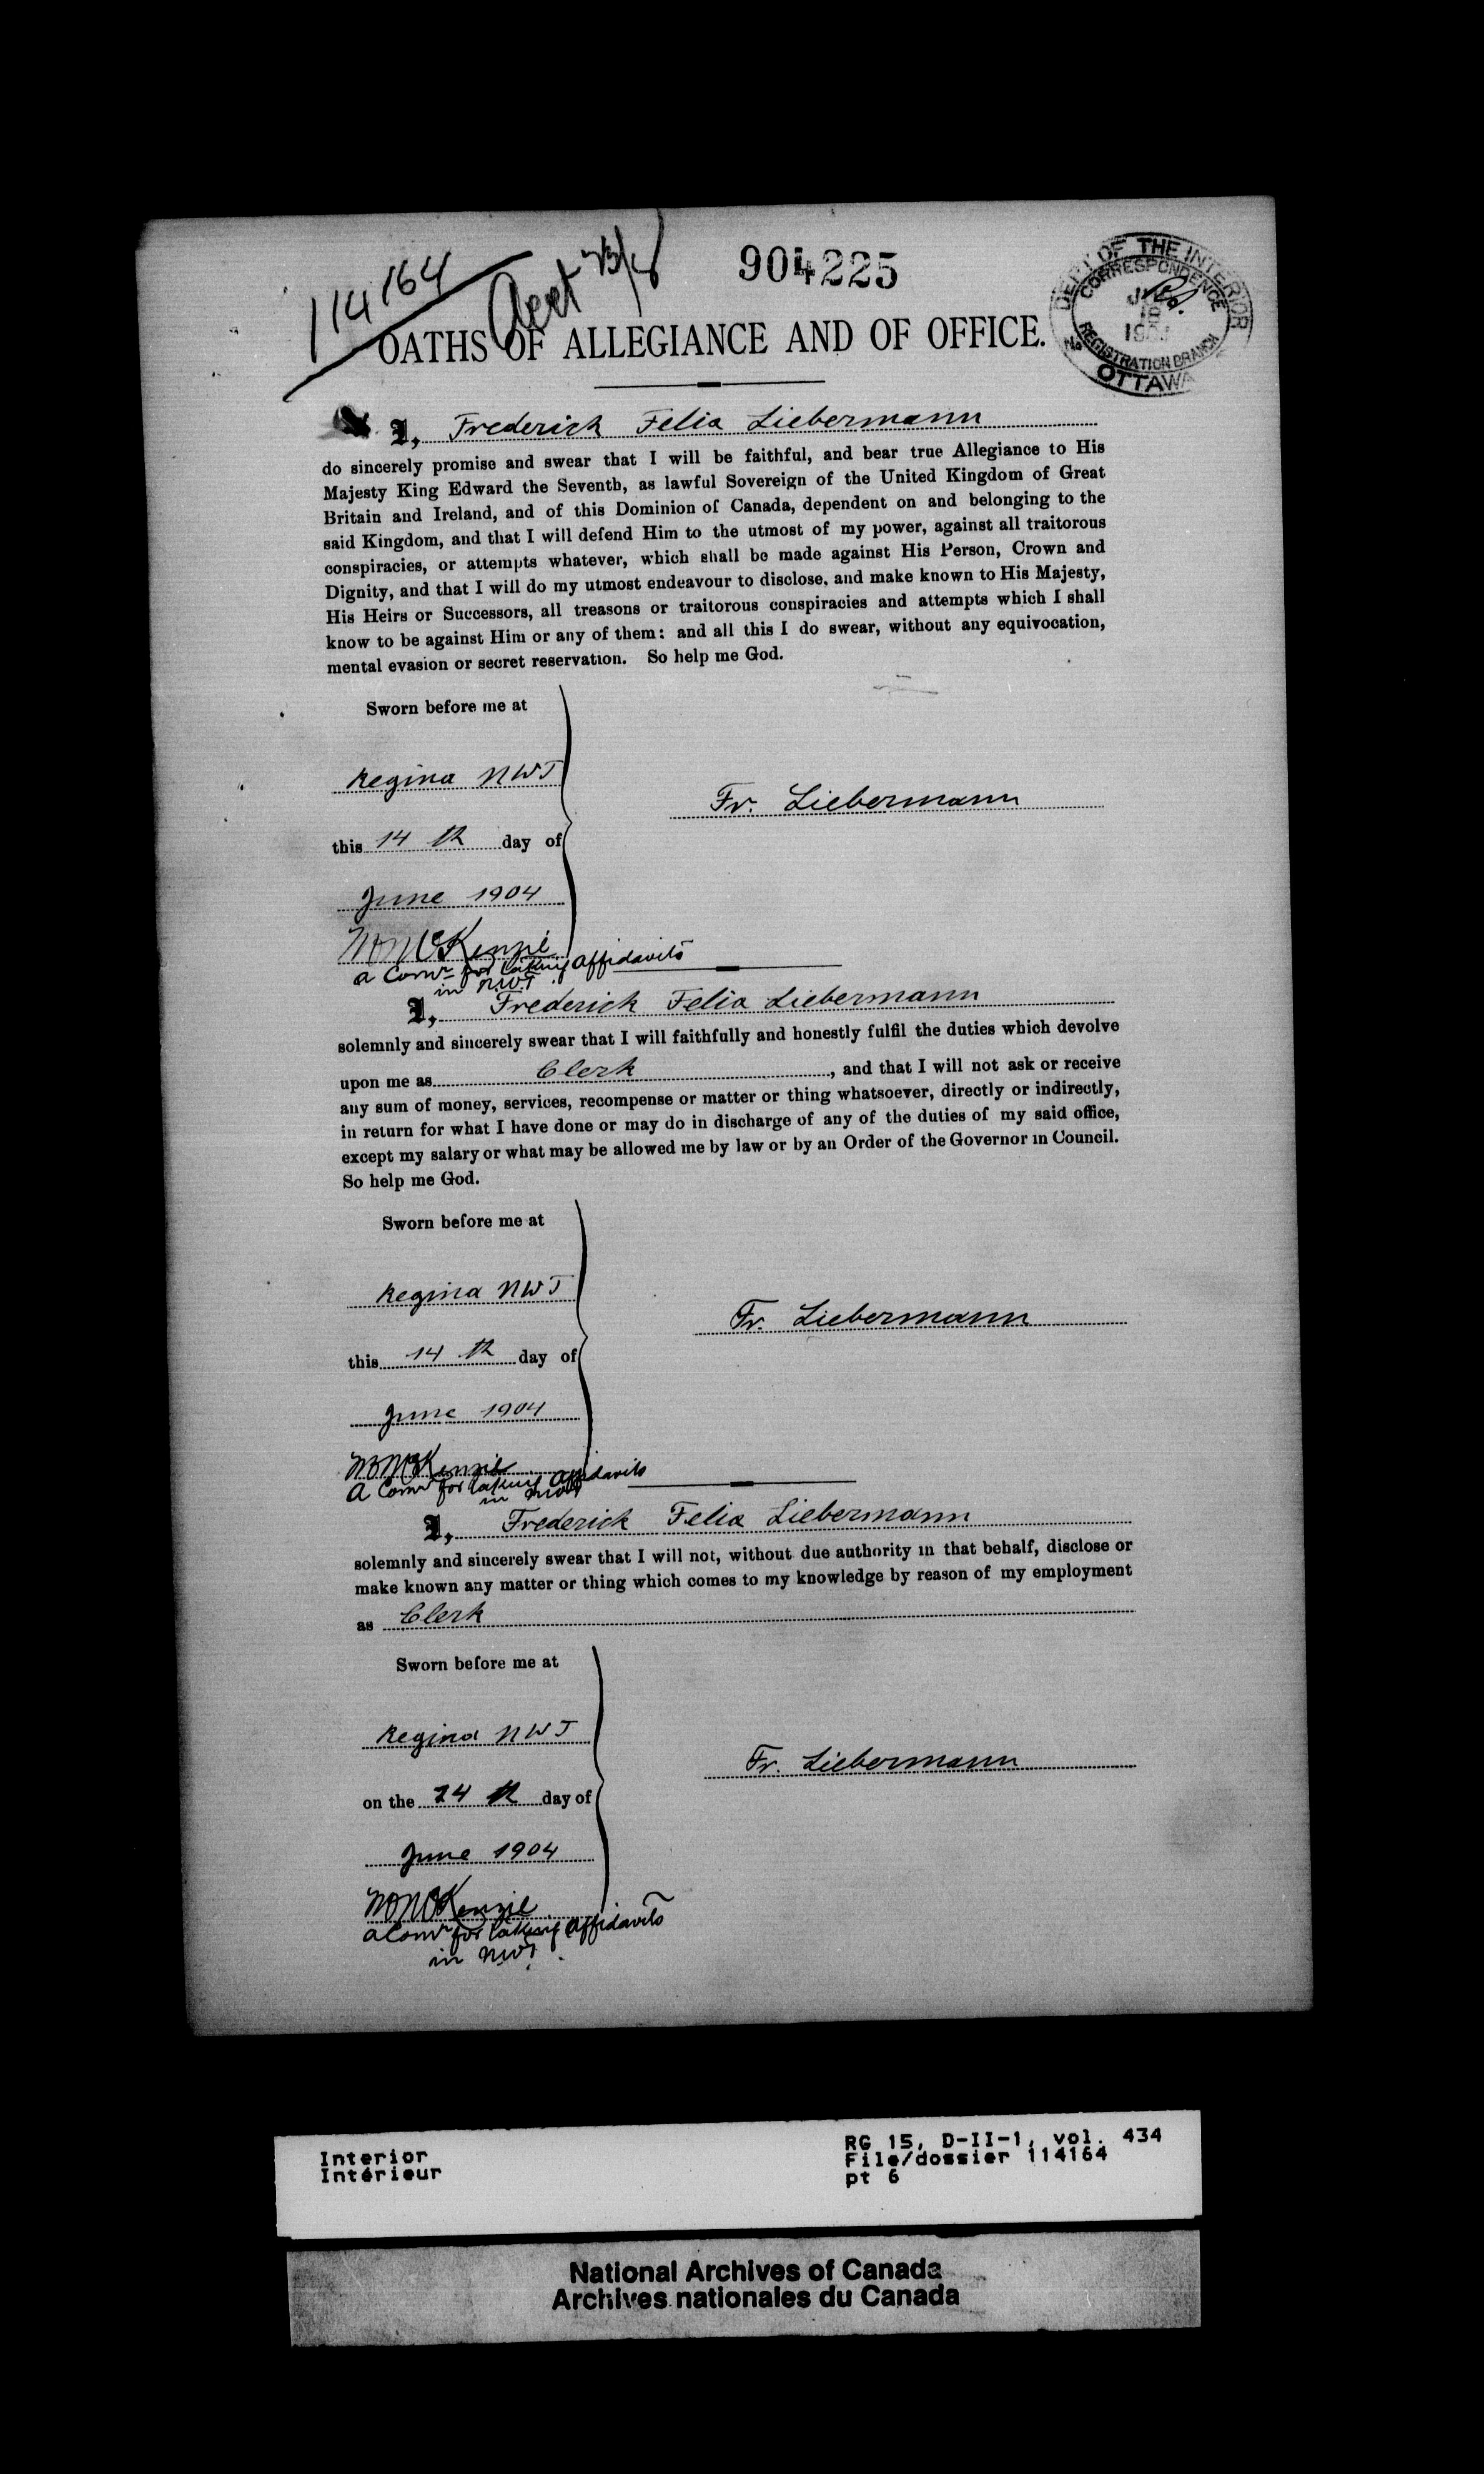 114164
904225
DEPT OF THE INTERIOR
CORRESPONDENCE
18
REGISTRATION BRANCH
OTTAWA
OATHS OF ALLEGIANCE AND OF OFFICE.
I, Frederick Felix Liebermann
do sincerely promise and swear that I will be faithful, and bear true Allegiance to His
Majesty King Edward the Seventh, as lawful Sovereign of the United Kingdom of Great
Britain and Ireland, and of this Dominion of Canada, dependent on and belonging to the
said Kingdom, and that I will defend Him to the utmost of my power, against all traitorous
conspiracies, or attempts whatever, which shall be made against His Person, Crown and
Dignity, and that I will do my utmost endeavour to disclose, and make known to His Majesty,
His Heirs or Successors, all treasons or traitorous conspiracies and attempts which I shall
know to be against Him or any of them: and all this I do swear, without any equivocation,
mental evasion or secret reservation. So help me God.
Sworn before me at
Regina NWT
Fr. Liebermann
this 14 th day of
June 1904
McKenzie
a Comr for taking affidavits
in N.W.T.
I, Frederick Felix Liebermann
solemnly and sincerely swear that I will faithfully and honestly fulfil the duties which devolve
upon me as Clerk, and that I will not ask or receive
any sum of money, services, recompense or matter or thing whatsoever, directly or indirectly,
in return for what I have done or may do in discharge of any of the duties of my said office,
except my salary or what may be allowed me by law or by an Order of the Governor in Council.
So help me God.
Sworn before me at
Regina NWT
Fr. Liebermann
this 14 th day of
June 1904
McKenzie
A Comr for taking affidavits
in NWT
I, Frederick Felix Liebermann
solemnly and sincerely swear that I will not, without due authority in that behalf, disclose or
make known any matter or thing which comes to my knowledge by reason of my employment
as Clerk
Sworn before me at
Regina NWT
Fr. Liebermann
on the 14 th day of
June 1904
McKenzie
a Comr for taking affidavits
in NWT.
Interior
Intérieur
RG 15, D-II-1, vol. 434
File/dossier 114164
pt 6
National Archives of Canada
Archives nationales du Canada